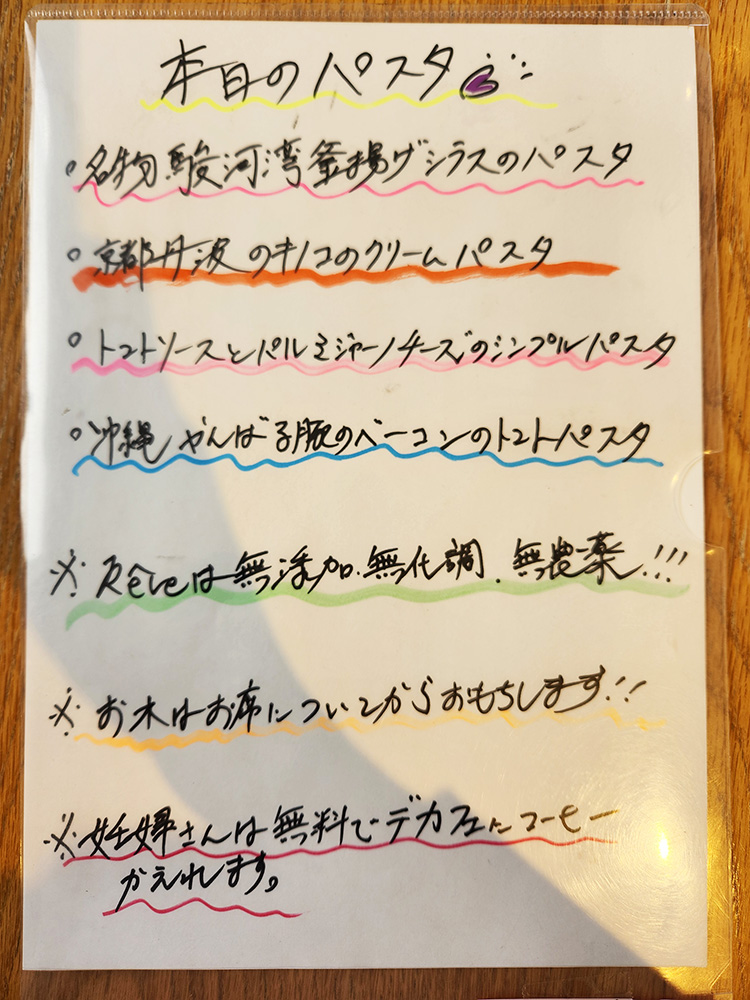 本日のパスタ
。名物駿河湾釜揚げシラスのパスタ
。京都丹波のキノコのクリームパスタ
。トマトソースとパルミジャーノチーズのシンプルパスタ
。沖縄やんばる豚のベーコンのトマトパスタ
※ Rêveは無添加.無化調.無農薬!!!
※ お水はお席についてからおもちします!!
※ 妊婦さんは無料でデカフェにコーヒー
かえれます。